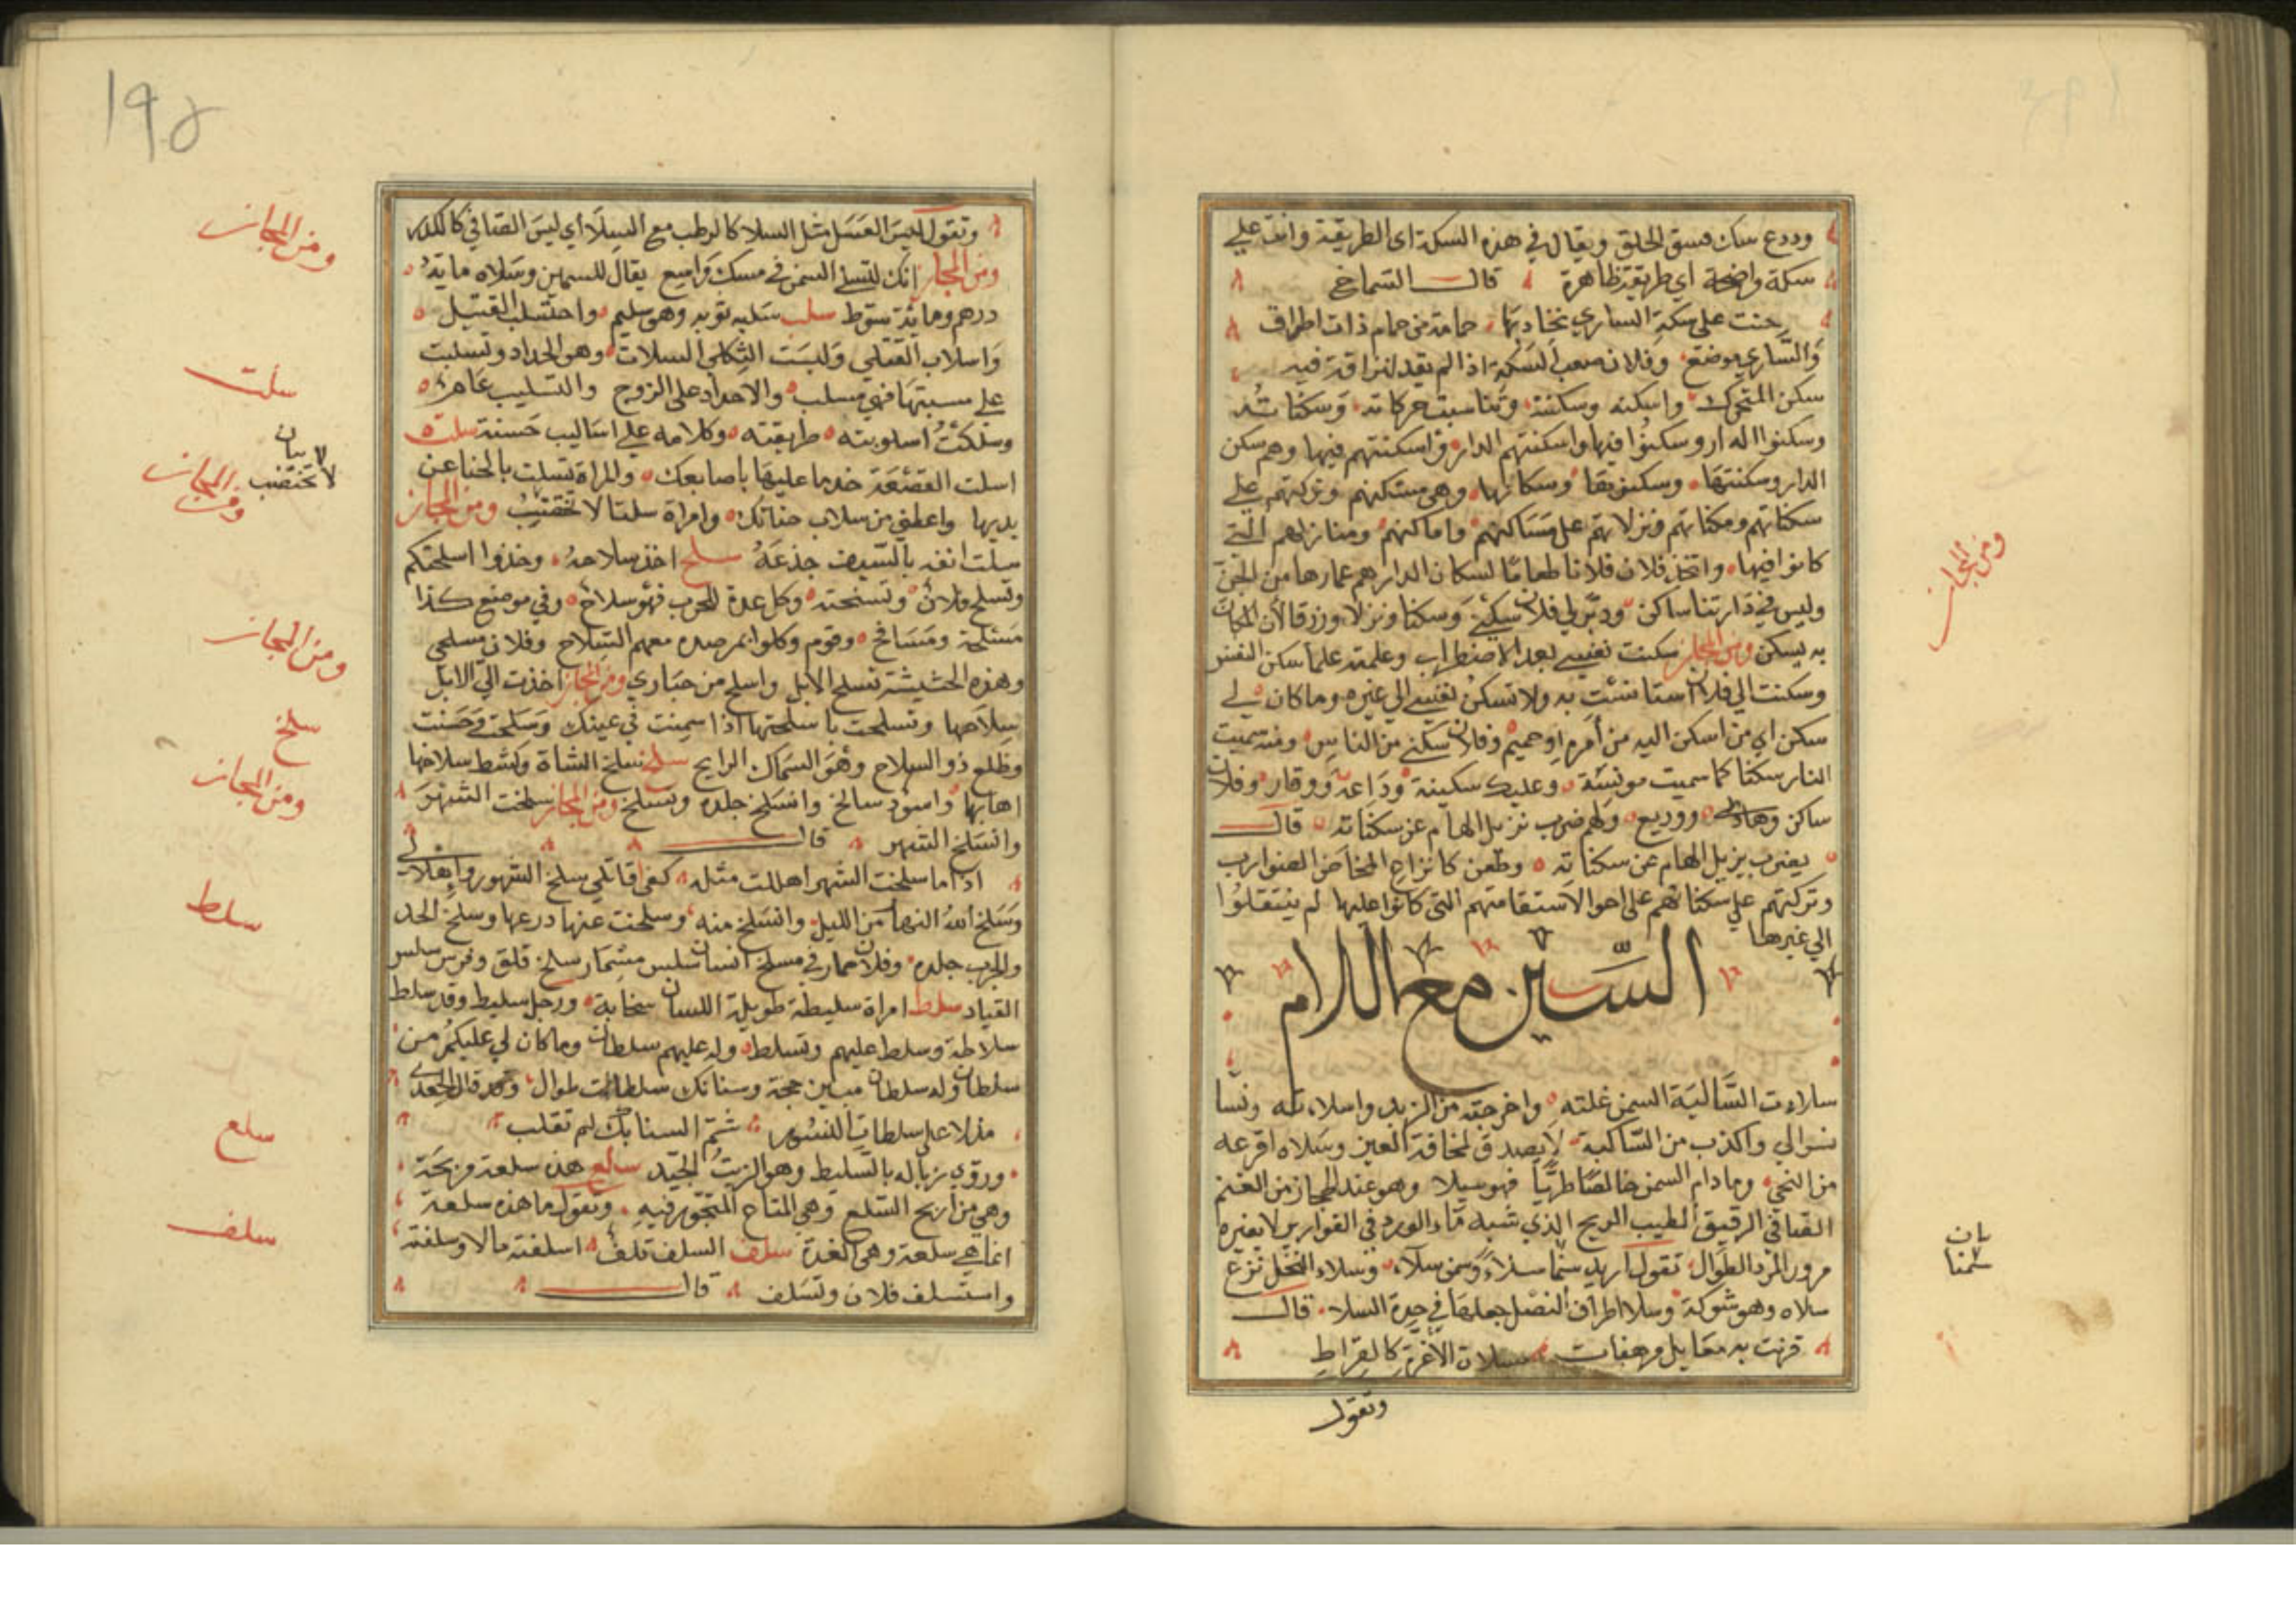 ودرع سك ضيق الحلق ويقال في هذه السكة اى الطريقة وانت علي
سكة واضحة اي طريقة ظاهرة قال الشماخ
حنت على سكة الساري تجاوبها حمامة من حمام ذات اطواق
والساري موضع وفلان صعب السكة اذا لم يقد لنزاقة فيه
سكن المتحرك واسكنه وسكنته وتناسبت حركاته وسكناته
وسكنوا الدار وسكنوا فيها واسكنتهم الدار واسكنتهم فيها وهم سكن
الدار وسكنتها وسكانها وهي مسكنهم وتركتهم علي
سكناتهم ومكناتهم ونزلاتهم على مساكنهم واماكنهم ومنازلهم التي
كانوا فيها واتخذ فلان فلانا طعاما لسكان الدار هم عمارها من الجن
وليس في دارتنا ساكن لي فلان وسكنا ونزلا ورزقا لان المكان
به يسكن ومن المجاز سكنت نفسي بعد الاضطراب وعلمته علما سكن النفس
وسكنت الي فلان استانست به ولا تسكن نفسي الي غيره وما كان لي
سكن اي من اسكن اليه من أمرء او حميم وفلان سكني من الناس ومنه سميت
النار سكنا كما سميت مونسة وعليك سكينة وداعة ووقار وفلان
ساكن وهادي ووديع ولهم ضرب نزيل الهام عن سكناته قال
يضرب يزيل الهام عن سكناته وطعن كانزاح المخاض الضوارب
وتركتهم علي سكناتهم على احوالاستقامتهم التي كانوا عليها لم ينتقلوا
الي غيرها
السين مع اللام
سلاءت السالية السمن غلته واخرجته من الزبد واسلاءته ونسا
سوالي واكذب من السالية لا يصدق لمخافة العين وسلاه افرغه
من النحي وما دام السمن خالصا طريا فهو سيلا وهو عند الحجاز من الغنم
الصافي الرقيق الطيب الريح الذي شبه ماء الورد في القوارير لا يغيره
مرور المرد الطوال تقول اريد سمنا سلاء وسمن سلاء وسلاء النخل نزع
سلاه وهو شوكه وسلا اطراف النصل جعلها في حدة السلا قال
قرنت به معابل مرهفات مسلات الأغرة كالقراط
وتقول
ومن المجاز
بان
سمنا
وتقول ليس العسل مثل السلا كالرطب مع السلاء اي ليس الصافي كالكدر
ومن المجاز انك لتسلي السمن في مسك واسع يقال للسمين وسلاه مايه
درهم ومائة سوط سلب سلبه ثوبه وهو سليم واحتسلب القتيل
واسلاب القتلي ولبست الثكلي السلاب وهو الحداد وتسلبت
علي ميتها فهي مسلب والاحداد على الزوج والتسليب عام
وسلكت اسلوبته طريقته وكلامه علي اساليب حسنة سلت
اسلت القصعة خذ ما عليها باصابعك والمراة تسلت بالحنا عن
يديها واعطني من سلاب حنائك وامراة سلتا لا تختضب ومن المجاز
سلت انفه بالسيف جذعه سلح اخذ سلاحه وخذوا اسلحتكم
وتسلح فلان وتسلحته وكل عدة للحرب فهو سلاح وفي موضع كذا
مسلحة ومسالح وقوم وكلوا بمرصده معهم السلاح وفلان مسلحي
وهذه الحشيشة تسلح الابل واسلح من حباري ومن المجاز اخذت اليّ الابل
سلاحها وتسلحت باسلحتها اذا سمنت في عينك وسلحت وحسنت
وطلع ذو السلاح وهو السماك الرامح سلخ نسلخ الشاة وكشط سلاخها
اهابها واسود سالخ وانسلخ جلده وتسلخ ومن المجاز سلخت الشهر
وانسلخ الشهر قال
اذا ما سلخت الشهر اهللت مثله كفي قاتلي سلخ الشهور واهلالي
وسلخ الله النهار من الليل وانسلخ منه وسلخت عنها درعها وسلخ الحد
والجرب جلده وفلان حمار في مسلخ انسان سلس مسمار سلس قلق وفرس سلس
القياد سلط امراة سليطة طويلة اللسان سخابة ورجل سليط وقد سلط
سلاطة وسلط عليهم وتسلط وله عليهم سلطان وما كان لي عليكم من
سلطان وله سلطان مبين حجة وسنابك سلطات طوال وقد قال الجعدي
مدلا على سلطات النسور شم السنابك لم تقلب
وروي زباله بالسليط وهو الزيت الجيد سلع هذه سلعة مربحة
وهي من اربح السلع وهي المتاع المتجور فيه وتقول ما هذه سلعة
انما هي سلعة وهي الغدة سلف السلف تلف اسلفته مالا وسلفته
واستسلف فلان وتسلف قال
ومن المجاز
سلت
بيان
لا تختضب
ومن المجاز
ومن المجاز
سلخ
ومن المجاز
سلط
سلع
سلف